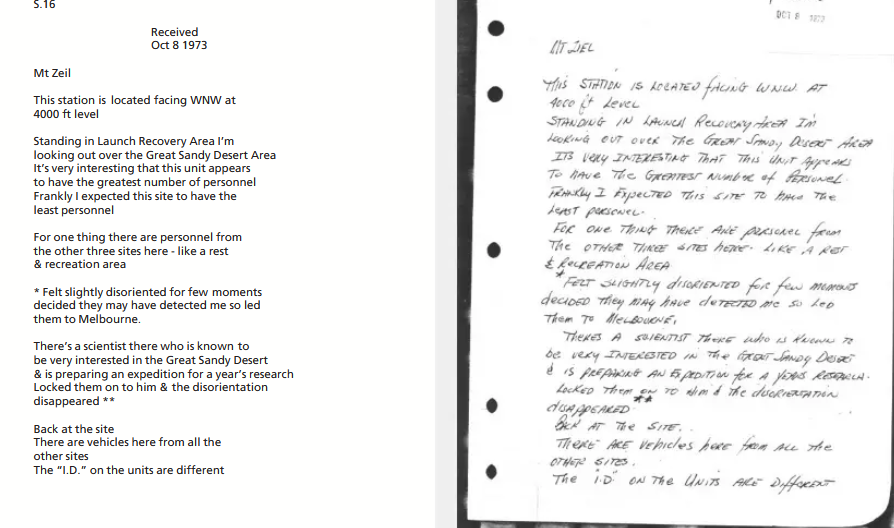 S.16
Received
Oct 8 1973
Mt Zeil
This station is located facing WNW at
4000 ft level
Standing in Launch Recovery Area I'm
looking out over the Great Sandy Desert Area
It's very interesting that this unit appears
to have the greatest number of personnel
Frankly I expected this site to have the
least personnel
For one thing there are personnel from
the other three sites here - like a rest
& recreation area
* Felt slightly disoriented for few moments
decided they may have detected me so led
them to Melbourne.
There's a scientist there who is known to
be very interested in the Great Sandy Desert
& is preparing an expedition for a year's research
Locked them on to him & the disorientation
disappeared **
Back at the site
There are vehicles here from all the
other sites
The “I.D.” on the units are different
OCT 8 1973
MT ZIEL
THIS STATION IS LOCATED FACING WNW AT
4000 ft LEVEL
STANDING IN LAUNCH RECOVERY AREA I'M
LOOKING OUT OVER THE GREAT SANDY DESERT AREA
ITS VERY INTERESTING THAT THIS UNIT APPEARS
TO HAVE THE GREATEST NUMBER of PERSONEL.
FRANKLY I EXPECTED THIS SITE TO HAVE THE
LEAST PERSONEL.
FOR ONE THING THERE ARE PERSONEL FROM
THE OTHER THREE SITES HERE - LIKE A REST
& RECREATION AREA
* FELT SLIGHTLY DISORIENTED FOR FEW MOMENTS
DECIDED THEY MAY HAVE DETECTED ME SO LED
THEM TO MELBOURNE.
THERES A SCIENTIST THERE WHO IS KNOWN TO
BE VERY INTERESTED IN THE GREAT SANDY DESERT
& IS PREPARING AN EXPEDITION FOR A YEARS RESEARCH.
LOCKED THEM ON TO HIM & THE DISORIENTATION
DISAPPEARED **
BACK AT THE SITE.
THERE ARE VEHICLES HERE FROM ALL THE
OTHER SITES.
THE "I.D." ON THE UNITS ARE DIFFERENT